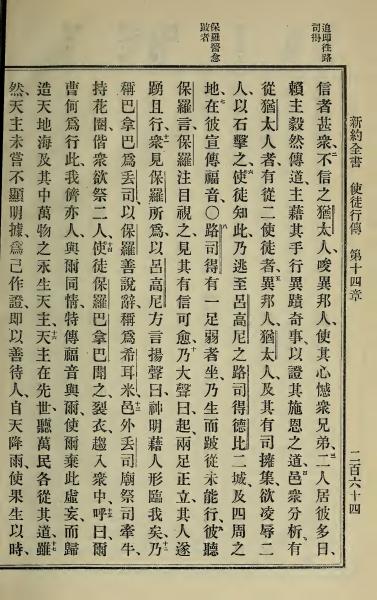 逃卽往路
司得
保羅醫愈
跛者
新約全書 使徒行傳 第十四章 二百六十四
信者甚衆、不信之猶太人、唆異邦人、使其心憾衆兄弟、二人居彼多日、
賴主毅然傳道、主藉其手行異蹟奇事、以證其施恩之道、邑衆分析、有
從猶太人者、有從二使徒者、異邦人、猶太人、及其有司、擁集欲凌辱二
人、以石擊之、使徒知此、乃逃至呂高尼之路司得德比二城、及四周之
地、在彼宣傳福音、〇路司得有一足弱者坐、乃生而跛、從未能行、彼聽
保羅言、保羅注目視之、見其有信可愈、乃大聲曰、起、兩足正立、其人遂
踴且行、衆見保羅所爲、以呂高尼方言揚聲曰、神明藉人形臨我矣、乃
稱巴拿巴爲丟司、以保羅善說辭、稱爲希耳米、邑外丟司廟祭司、牽牛、
持花圈、偕衆欲祭二人、使徒保羅巴拿巴聞之、裂衣趨入衆中、呼曰、爾
曹何爲行此、我儕亦人、與爾同情、特傳福音與爾、使爾棄此虛妄、而歸
造天地海及其中萬物之永生天主、天主在先世、聽萬民各從其道、雖
然天主未嘗不顯明據、爲己作證、卽以善待人、自天降雨、使果生以時、